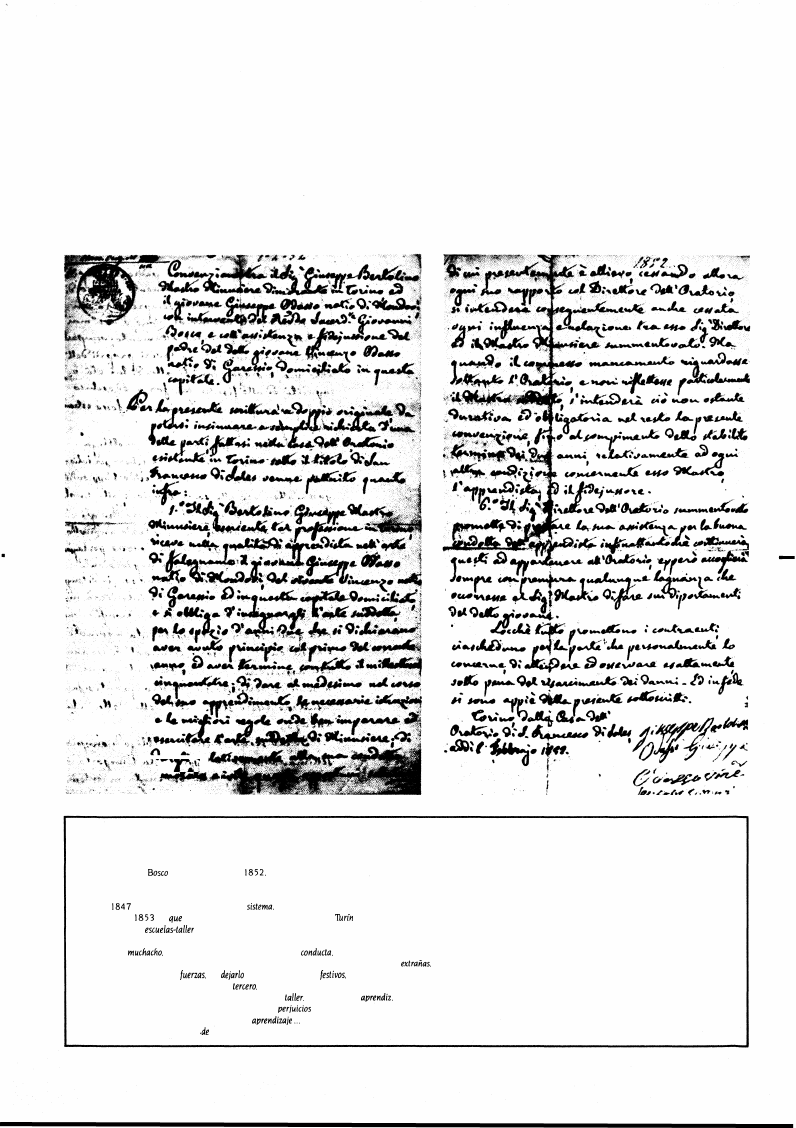 Convenzione tra il Sig. Giuseppe Bertolino
Mastro Minusiere dimorante in Torino ed
il giovane Giuseppe Odasso natio di Mondovì
con intervento del Rev.do Sacerd. Giovanni
Bosco e coll'assistenza e fidejussione del
padre del detto giovane Vincenzo Odasso
natio di Garessio, domiciliato in questa
capitale.
Per la presente scrittura in doppio originale da
potersi insinuare a semplice richiesta d'una
delle parti fattosi nella Casa dell'Oratorio
esistente in Torino sotto il titolo di San
Francesco di Sales venne pattuito quanto
infra:
1.° Il Sig. Bertolino Giuseppe Mastro
Minusiere esercente tal professione in Torino,
riceve nella qualità di apprendista nell'arte
di falegname il giovane Giuseppe Odasso
natio di Mondovì del vivente Vincenzo natio
di Garessio ed in questa capitale domiciliato,
e si obbliga d'insegnargli l'arte suddetta,
per lo spazio d'anni due che si dichiarano
aver avuto principio col primo del corrente
anno, ed aver termine con tutto il milleottocento
cinquantatre; di dare al medesimo nel corso
del suo apprendimento, le necessarie istruzioni
e le migliori regole onde ben imparare ed
esercitare l'arte suddetta di Minusiere, di
1852
di cui presentemente è allievo, cessando allora
ogni suo rapporto col Direttore dell'Oratorio,
si intenderà conseguentemente anche cessata
ogni influenza e relazione tra esso Sig. Direttore
ed il Mastro Minusiere summentovato. Ma
quando il commesso mancamento riguardasse
soltanto l'Oratorio, e non riflettesse particolarmente
il Mastro suddetto, s'intenderà ciò non ostante
durativa ed obbligatoria nel resto la presente
convenzione, fino al compimento dello stabilito
termine dei due anni, relativamente ad ogni
altra condizione concernente esso Mastro,
l'apprendista, ed il fidejussore.
6.° Il Sig. Direttore dell'Oratorio summentovato
promette di prestare la sua assistenza per la buona
condotta dell'apprendista infinattantochè continuerà
questi ad appartenere all'Oratorio, epperò accoglierà
sempre con premura qualunque lagnanza che
occorresse al Sig. Mastro di fare sui diportamenti
del detto giovane.
Locchè tutto promettono i contraenti,
ciascheduno per la parte che personalmente lo
concerne, di attendere ed osservare esattamente
sotto pena del risarcimento dei danni. Ed in fede
si sono appiè della presente sottoscritti.
Torino dalla Casa dell'
Oratorio di S. Francesco di Sales,
addì Febbrajo
Bosco 1852.
1847 sistema.
1853 que Turín
escuelas-taller
muchacho. conducta.
extrañas.
fuerzas. dejarlo festivos,
tercero.
taller. aprendiz.
perjuicios
aprendizaje ...
.de